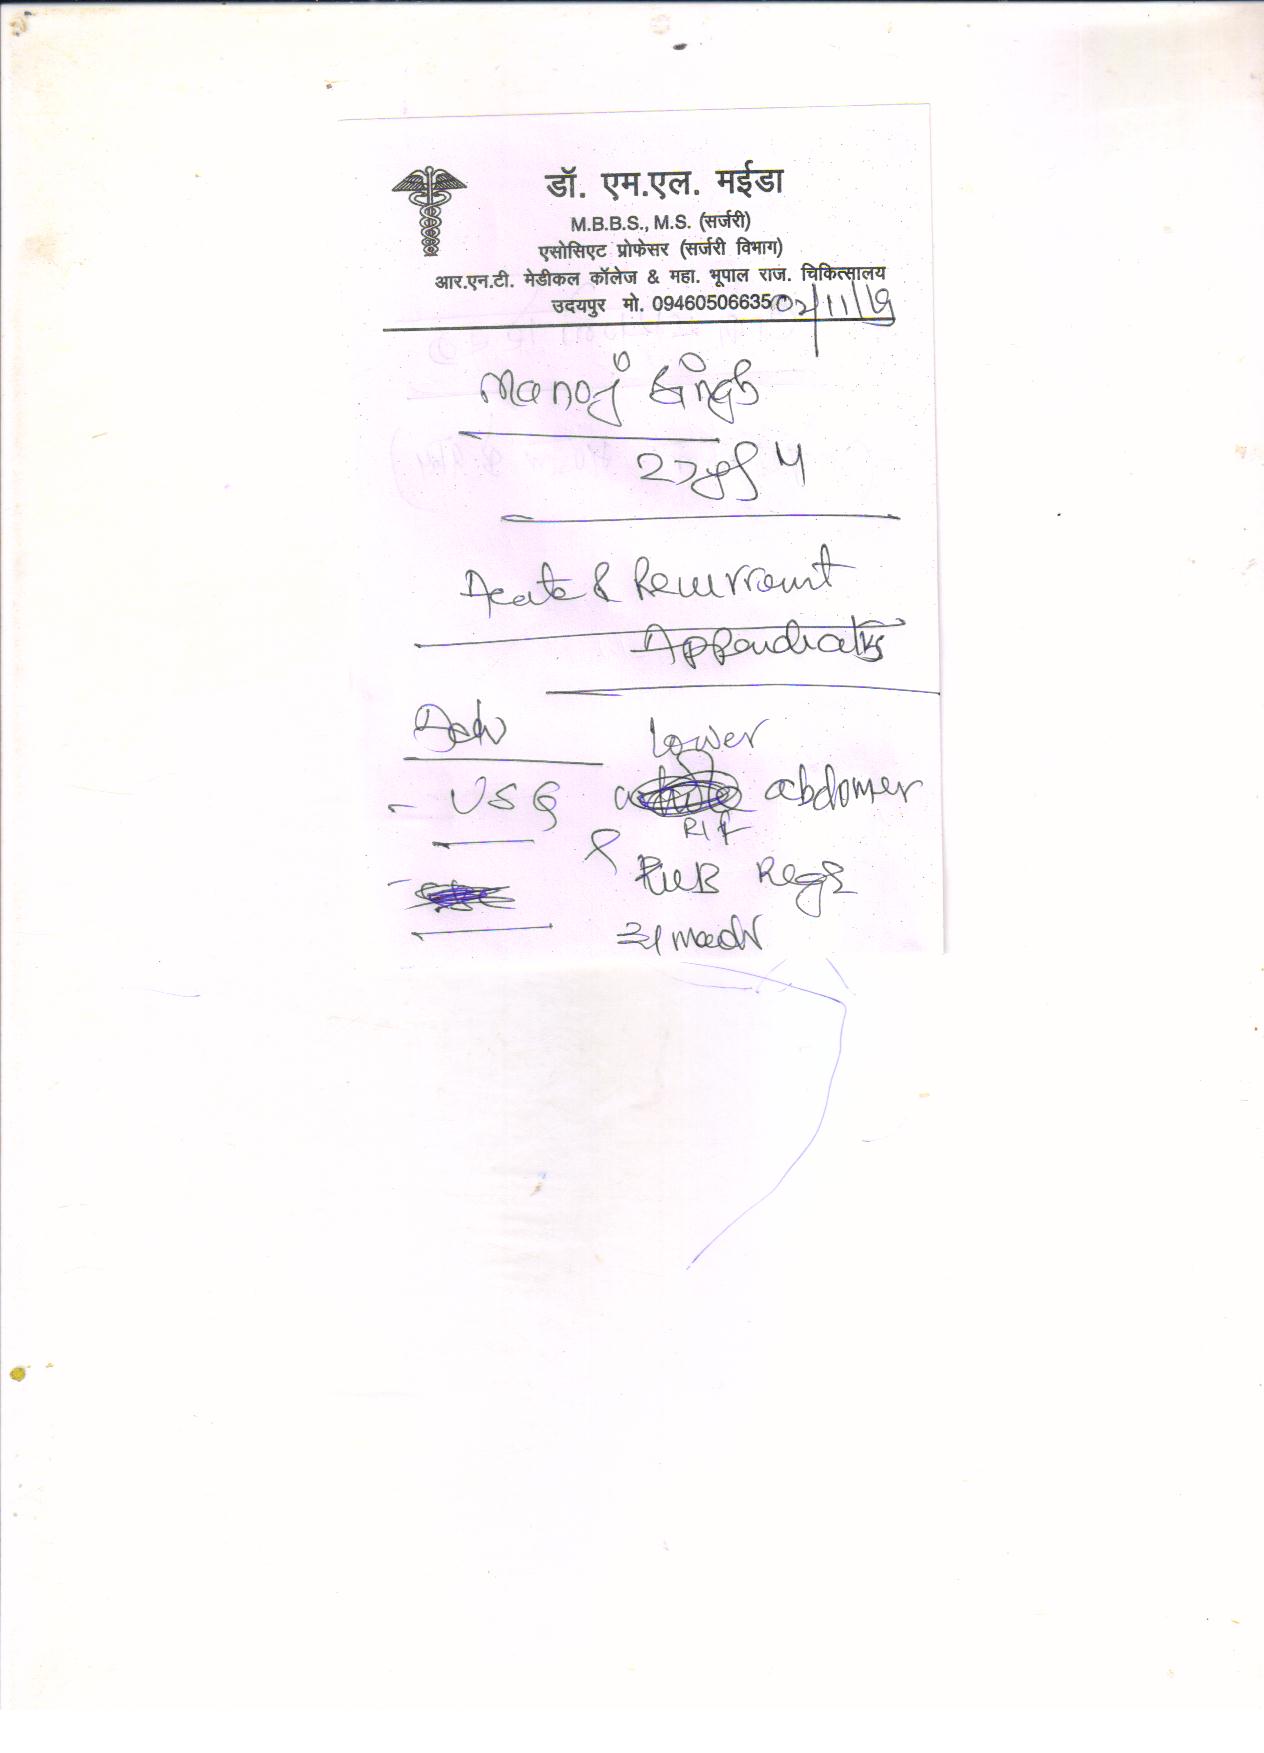 डॉ. एम.एल. मईडा
M.B.B.S., M.S. (सर्जरी)
एसोसिएट प्रोफेसर (सर्जरी विभाग)
आर.एन.टी. मेडीकल कॉलेज & महा. भूपाल राज. चिकित्सालय
उदयपुर मो. 09460506635
Manoj Singh
Acute & Recurrent
Appendicitis
Adv
lower
- USG abdomen
RIF
& KUB Region